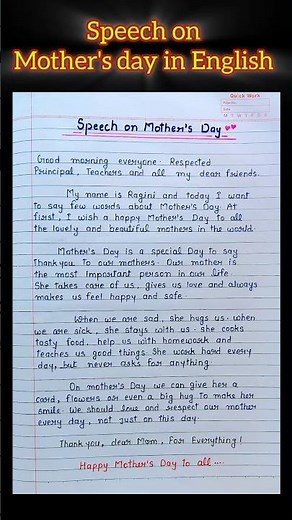 Speech on
Mother's day in English
Quick Work
Speech on Mother's Day
Good morning everyone. Respected
Principal, Teachers and all my dear friends.
My name is Ragini and today I want
to say few words about Mother's Day. At
first, I wish a happy Mother's Day to all
the lovely and beautiful mothers in the world.
Mother's Day Is a special Day to say
Thank you To our mothers. Our mother Is
the most Important person in our life.
She takes care of us, gives us love and always
makes us feel happy and safe.
When we are sad, she hugs us. when
we are sick, she stays with us. she cooks
tasty food, help us with homework and
teaches us good things. She work hard every
day, but never asks for anything.
On mother's Day we can give her a
card, flowers or even a big hug To make her
smile. We should love and respect our mother
every day, not just on this day.
Thank you, dear Mom, For Everything!
Happy Mother's Day To all ....